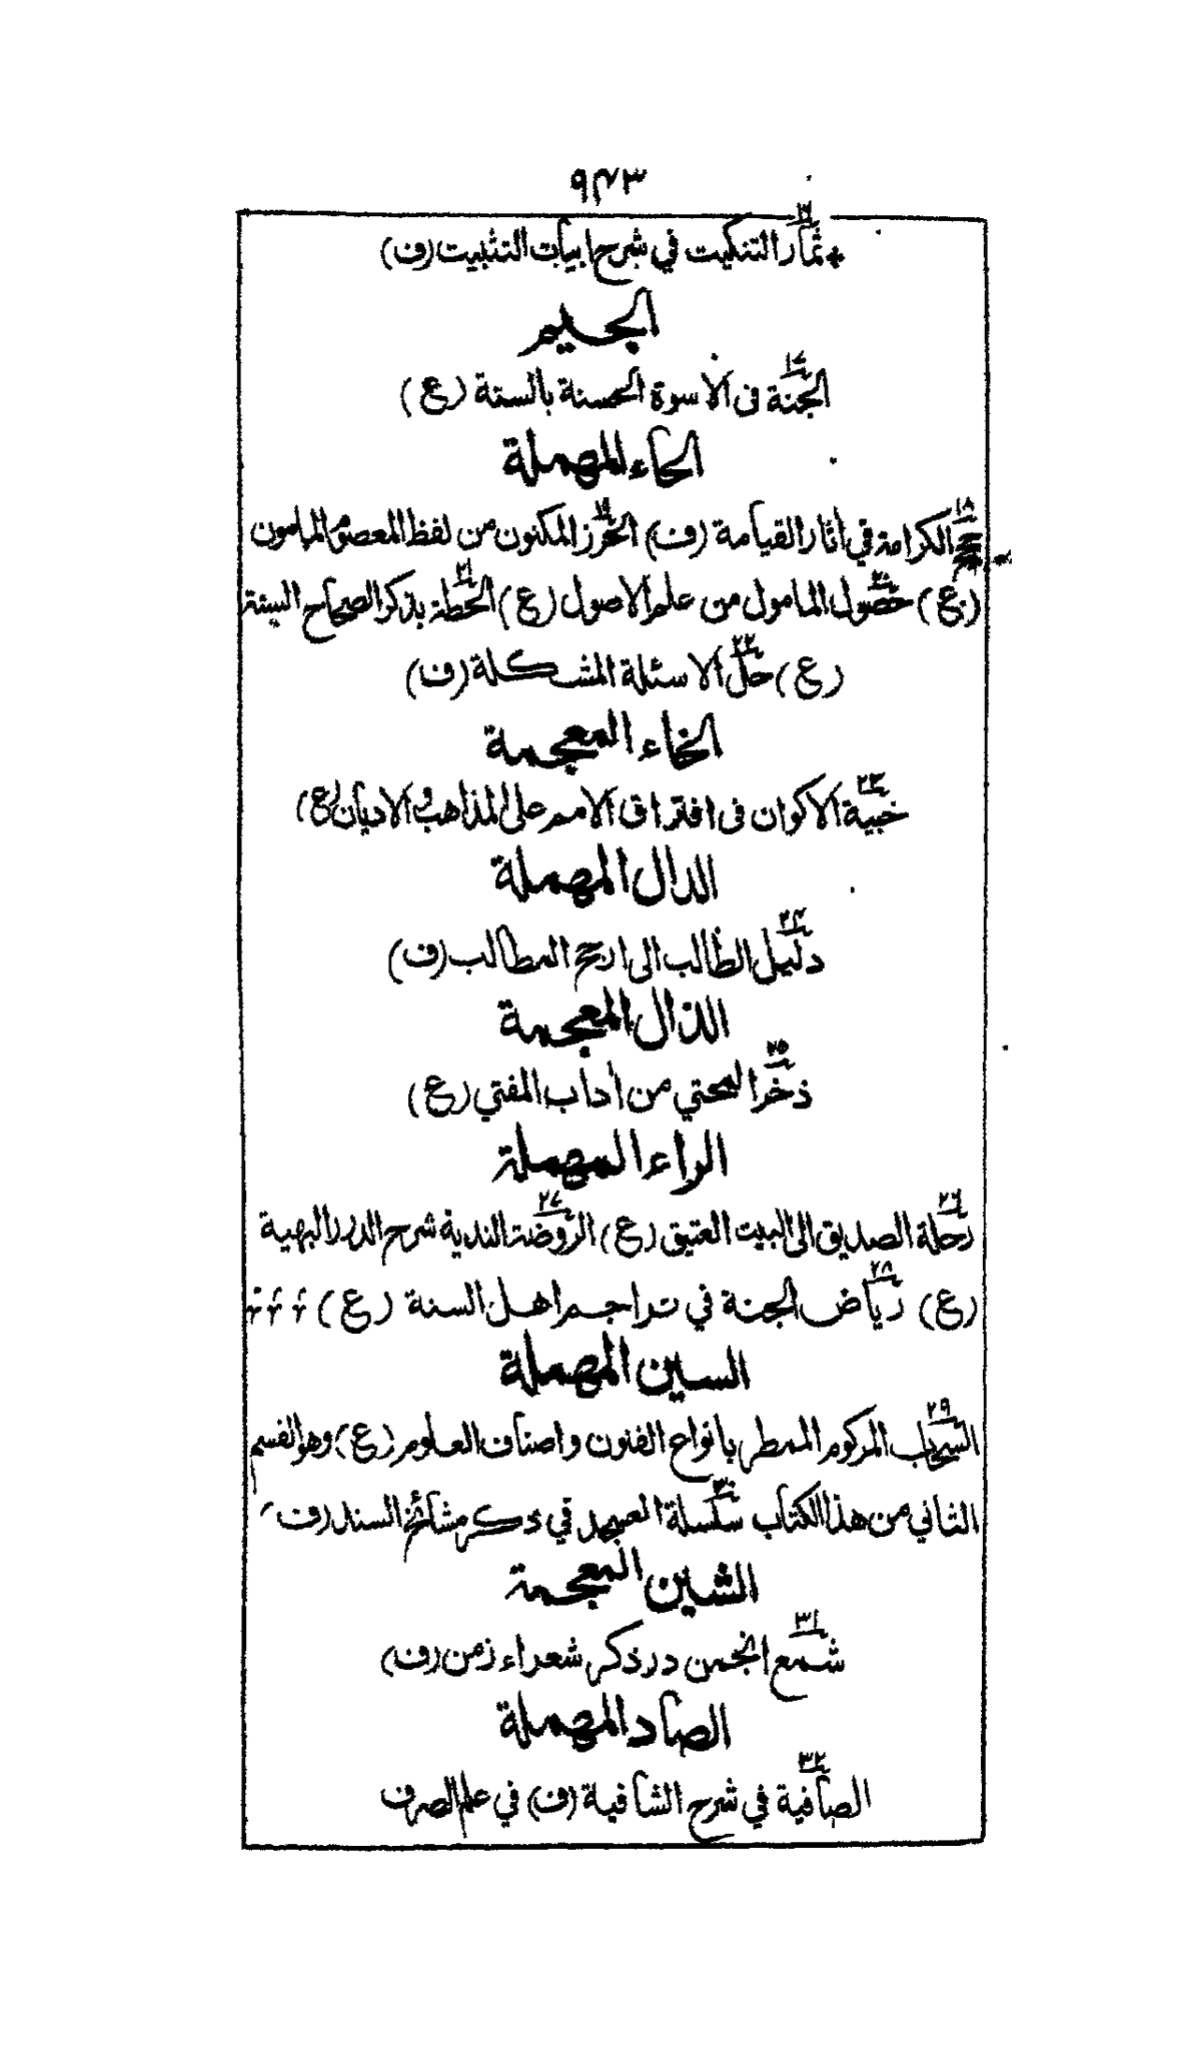 ٩٤٣
١٦ * ثمار التنكيت في شرح ابيات التثبيت (ف)
الجيم
١٧ الجنة فى الاسوة الحسنة بالسنة (ع)
الحاء المهملة
١٨ حجج الكرامة في اثار القيامة (ف) ١٩ الحرز المكنون من لفظ المعصوم المامون
(ع) ٢٠ حصول المامول من علم الاصول (ع) ٢١ الحطة بذكر الصحاح الستة
(ع) ٢٢ حل الاسئلة المشكلة (ف)
الخاء المعجمة
٢٣ خبية الاكوان فى افتراق الامم على المذاهب والاديان (ع)
الدال المهملة
٢٤ دليل الطالب الى ارجح المطالب (ف)
الذال المعجمة
٢٥ ذخر المحتي من اداب المفتي (ع)
الراء المهملة
٢٦ رحلة الصديق الى البيت العتيق (ع) ٢٧ الروضة الندية شرح الدرر البهية
(ع) ٢٨ رياض الجنة في تراجم اهل السنة (ع)
السين المهملة
٢٩ السحاب المركوم الممطر بانواع الفنون واصناف العلوم (ع) وهو القسم
الثاني من هذا الكتاب ٣٠ سلسلة العسجد في ذكر مشائخ السند (ف)
الشين المعجمة
٣١ شمع انجمن در ذكر شعراء زمن (ف)
الصاد المهملة
٣٢ الصافية في شرح الشافية (ف) في علم الصرف